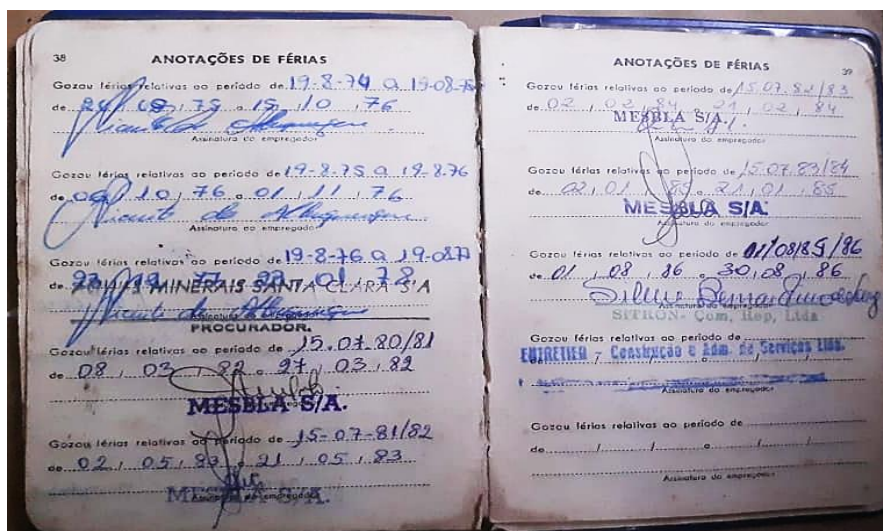 38
ANOTAÇÕES DE FÉRIAS
Gozou férias relativas ao período de 19-8-74 a 19-08-75
de 75 a 15 / 10 / 76
Vicente de Albuquerque
Assinatura do empregador
Gozou férias relativas ao período de 19-8-75 a 19-8-76
de 10 / 76 a 01 / 11 / 76
Vicente de Albuquerque
Assinatura do empregador
Gozou férias relativas ao período de 19-8-76 a 19-08-77
de 77 01 / 78
MINERAIS SANTA CLARA S/A
Vicente de Albuquerque
Assinatura do empregador
PROCURADOR.
Gozou férias relativas ao período de 15.07.80/81
de 08 / 03 / 82 a 27 / 03 / 82
MESBLA S/A.
Gozou férias relativas ao período de 15-07-81/82
de 02 / 05 / 83 a 21 / 05 / 83
Assinatura do empregador
MESBLA S/A.
39
ANOTAÇÕES DE FÉRIAS
Gozou férias relativas ao período de 15.07.82/83
de 02 / 02 / 84 a 21 / 02 / 84
MESBLA S/A.
Assinatura do empregador
Gozou férias relativas ao período de 15.07.83/84
de 02 / 01 / 85 a 21 / 01 / 85
MESBLA S/A.
Assinatura do empregador
Gozou férias relativas ao período de 01/08/85/86
de 01 / 08 / 86 a 30 / 08 / 86
Assinatura do empregador
SITRON - Com, Rep, Ltda
Gozou férias relativas ao período de
- Construção e Adm. de Serviços Ltda.
Assinatura do empregador
Gozou férias relativas ao período de
de / / a / /
Assinatura do empregador